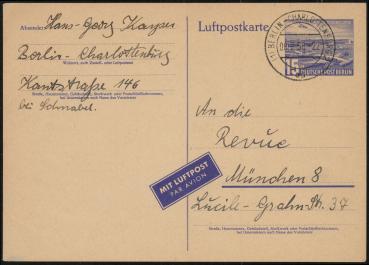 Absender: Hans-Georg Kayser
Berlin-Charlottenburg
Wohnort, auch Zustell- oder Leitpostamt
Kantstraße 146
bei Schnabel.
Straße, Hausnummer, Gebäudeteil, Stockwerk oder Postschließfachnummer,
bei Untermietern auch Name des Vermieters
Luftpostkarte
BERLIN-CHARLOTTENBURG
15
DEUTSCHE POST BERLIN
An die
Revue
München 8
Lucile-Grahn-Str. 37
Straße, Hausnummer, Gebäudeteil, Stockwerk oder Postschließfachnummer,
bei Untermietern auch Name des Vermieters
MIT LUFTPOST
PAR AVION